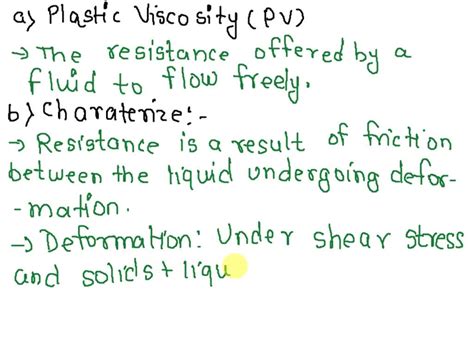 a) Plastic Viscosity (PV)
→ The resistance offered by a
fluid to flow freely.
b) Charaterize:-
→ Resistance is a result of friction
between the liquid undergoing defor-
-mation.
→ Deformation: Under shear stress
and solids + liqu